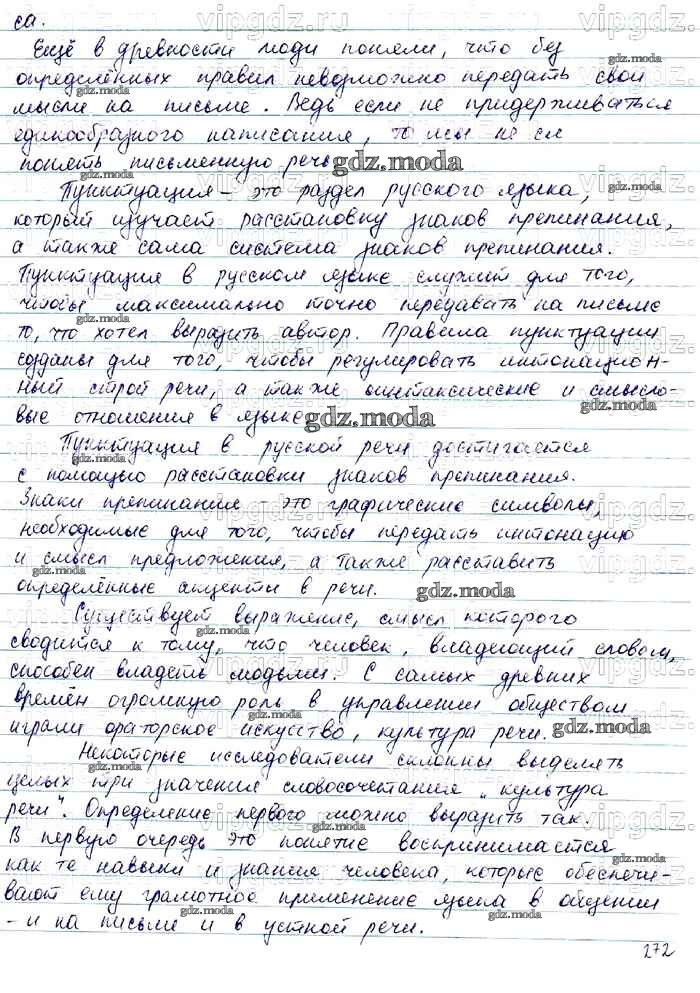 са.
Ещё в древности люди поняли, что без
определённых правил невозможно передать свои
мысли на письме. Ведь если не придерживаться
единообразного написания, то
понять письменную речь
Пунктуация – это раздел русского языка,
который изучает расстановку знаков препинания,
а также сама система знаков препинания.
Пунктуация в русском языке служит для того,
чтобы максимально точно передавать на письме
то, что хотел выразить автор. Правила пунктуации
созданы для того, чтобы регулировать интонацион-
ный строй речи, а также синтаксические и смысло-
вые отношения в языке
Пунктуация в русской речи достигается
с помощью расстановки знаков препинания.
Знаки препинания – это графические символы,
необходимые для того, чтобы передать интонацию
и смысл предложения, а также расставить
определённые акценты в речи.
Существует выражение, смысл которого
сводится к тому, что человек, владеющий словом,
способен владеть людьми. С самых древних
времён огромную роль в управлении обществом
играли ораторское искусство, культура речи.
Некоторые исследователи склонны выделять
целых три значения словосочетания „культура
речи". Определение первого можно выразить так.
В первую очередь это понятие воспринимается
как те навыки и знания человека, которые обеспечи-
вают ему грамотное применение языка в общении
- и на письме и в устной речи.
272
vipgdz.ru
gdz.moda